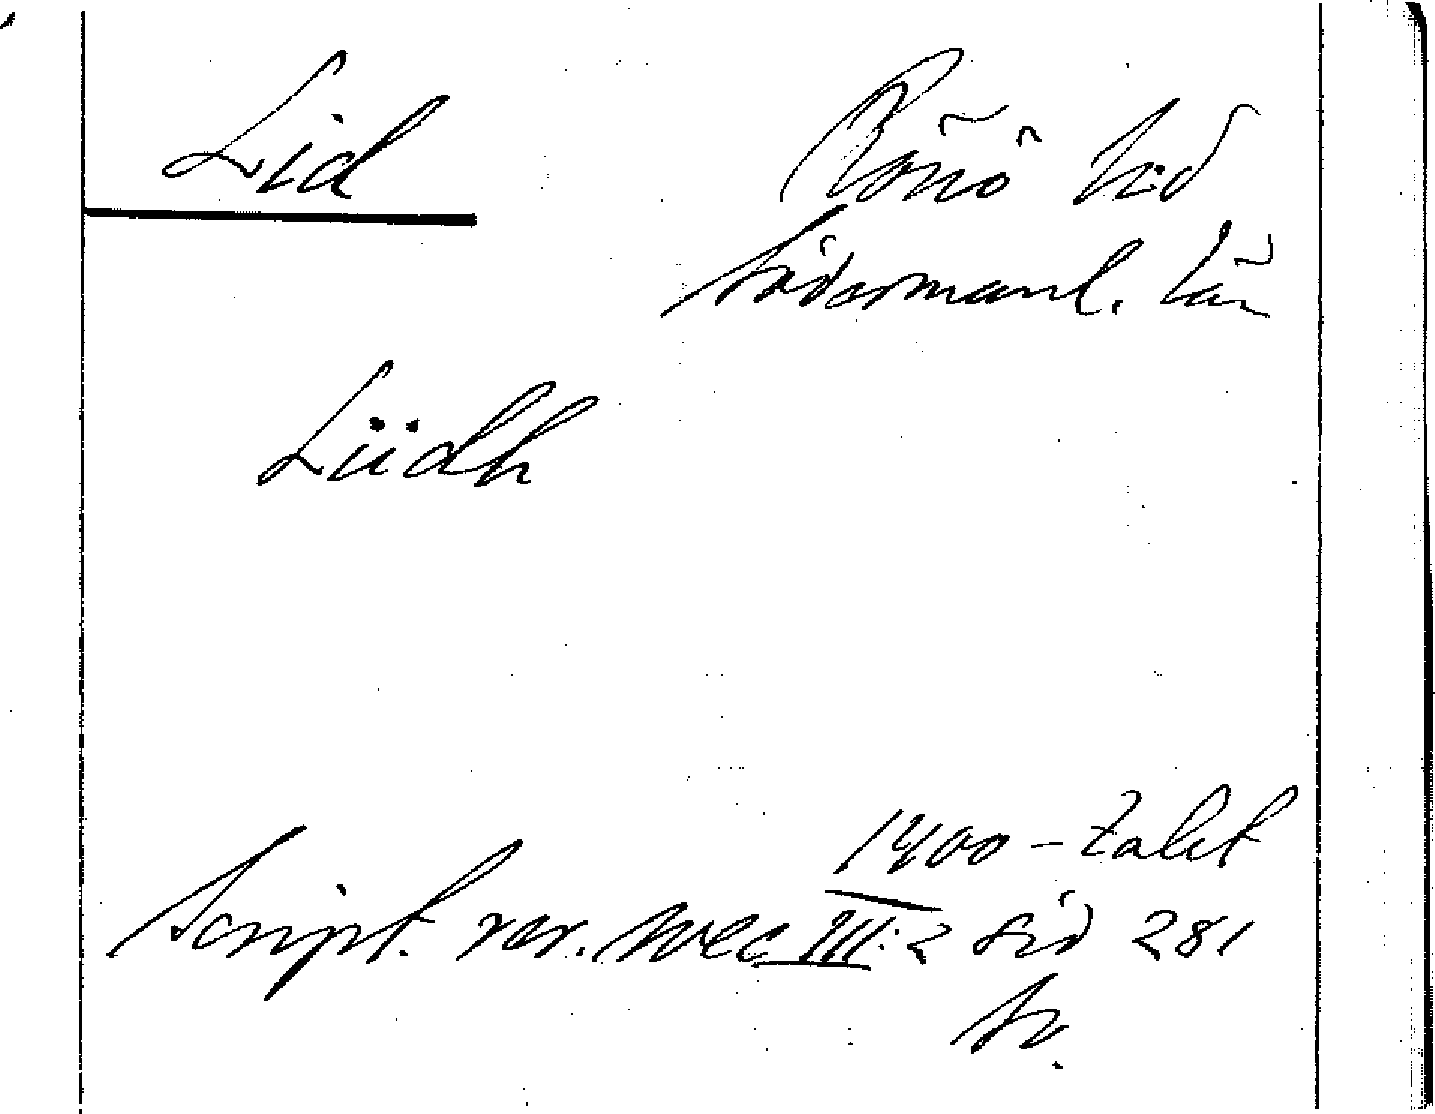 Lid
Rönö hd
Södermanl. län
Liidh
1400-talet
Script. rer. svec III:2 sid 281
tr.